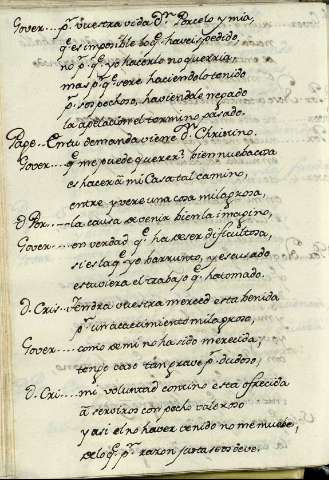 Gover.... pr. vuestra vida Dn. Porcelo y mia,
q.e es imposible lo q.e haveis pedido,
no pr. q.e yo hacerlo no querria,
mas pr. q.e sere haciendolo tenido
pr. sospechoso, haviendole negado
la apelacion el termino pasado.
Page.. En tu demanda viene Dn. Chrisino.
Gover.. q.e me puede querer? bien nueba cosa
es hacer a mi Casa tal camino,
entre y vere una cosa milagrosa,
D. Por.... la causa de venir bien la imagino,
Gover... en verdad q.e ha de ser dificultosa,
si es la q.e yo barrunto, y escusado
estuviera el trabajo q.e ha tomado.
D. Cris.. tendra vuestra merced esta benida
pr. un acaecimiento milagroso,
Gover.... como de mi no ha sido merecida y
tengo caso tan grave pr. dudoso,
D. Cri.... mi voluntad contino esta ofrecida
a serviros con pecho valeroso
y asi el no haver venido no me muebe,
de lo q.e pr. razon justa se os deve.